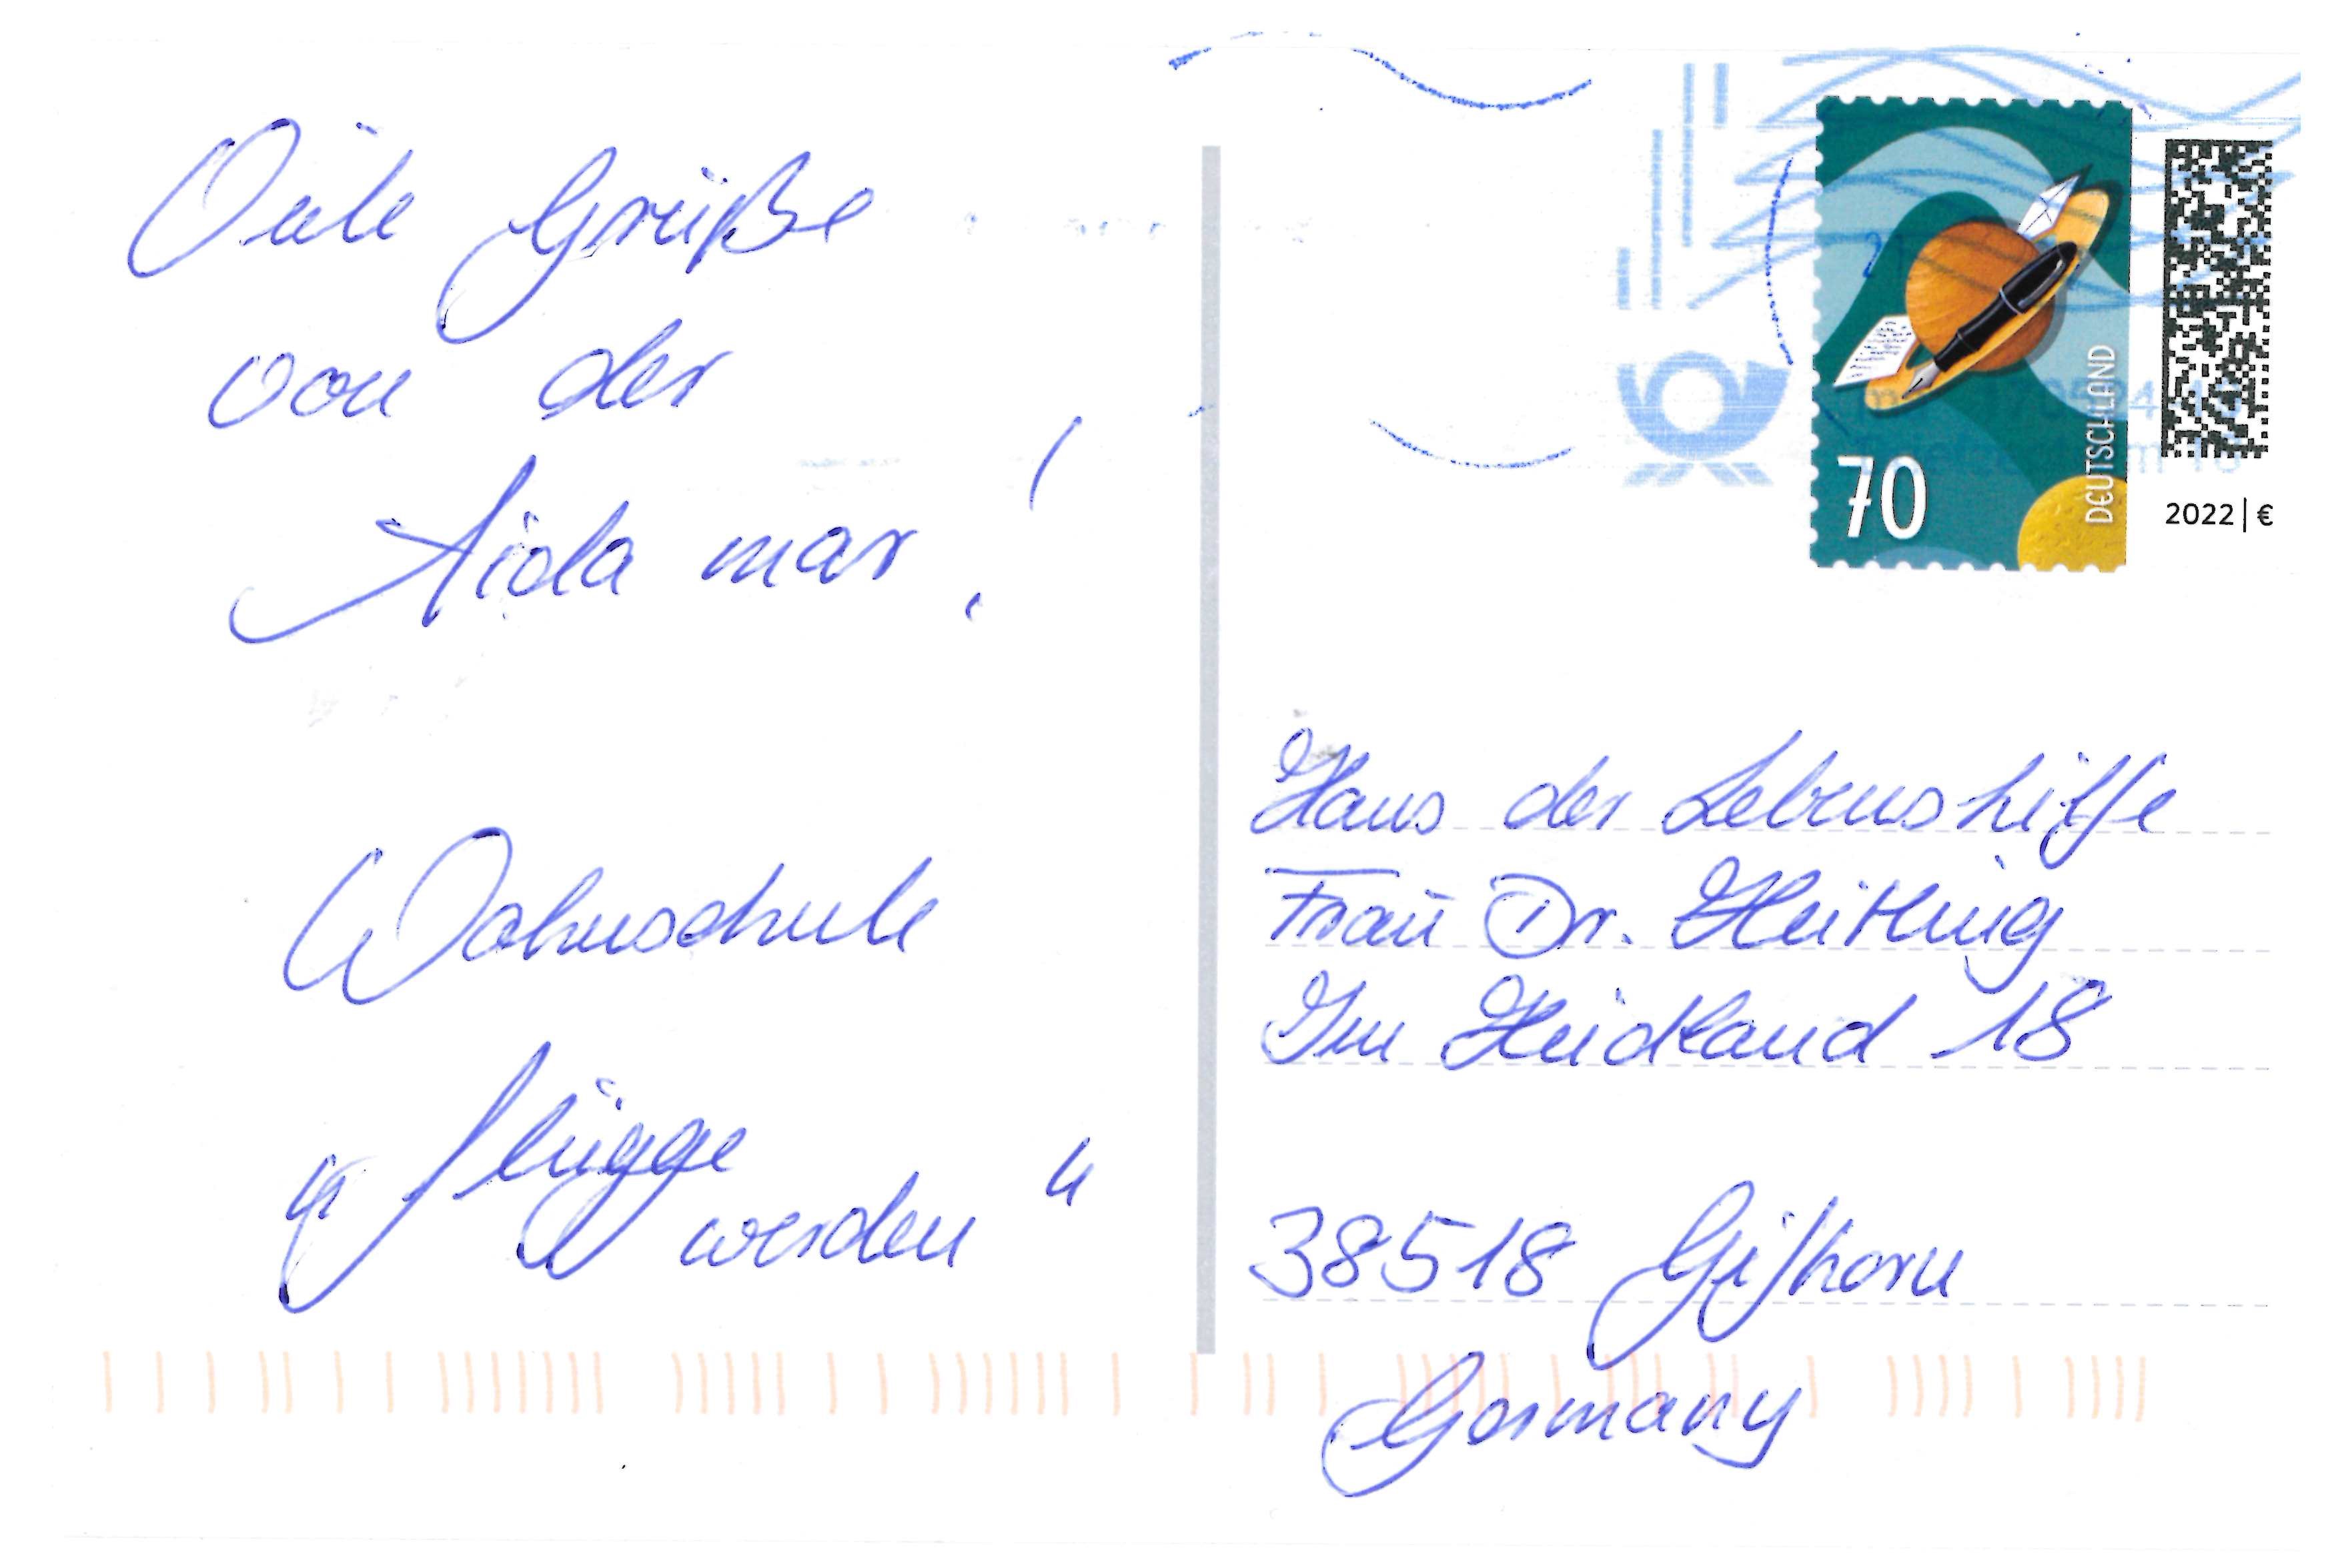 Viele Grüße
von der
Aida mar!
Wohnschule
"flügge
werden"
70
DEUTSCHLAND
2022 | €
Haus der Lebenshilfe
Frau Dr.
Im Heidland 18
38518 Gifhorn
Germany